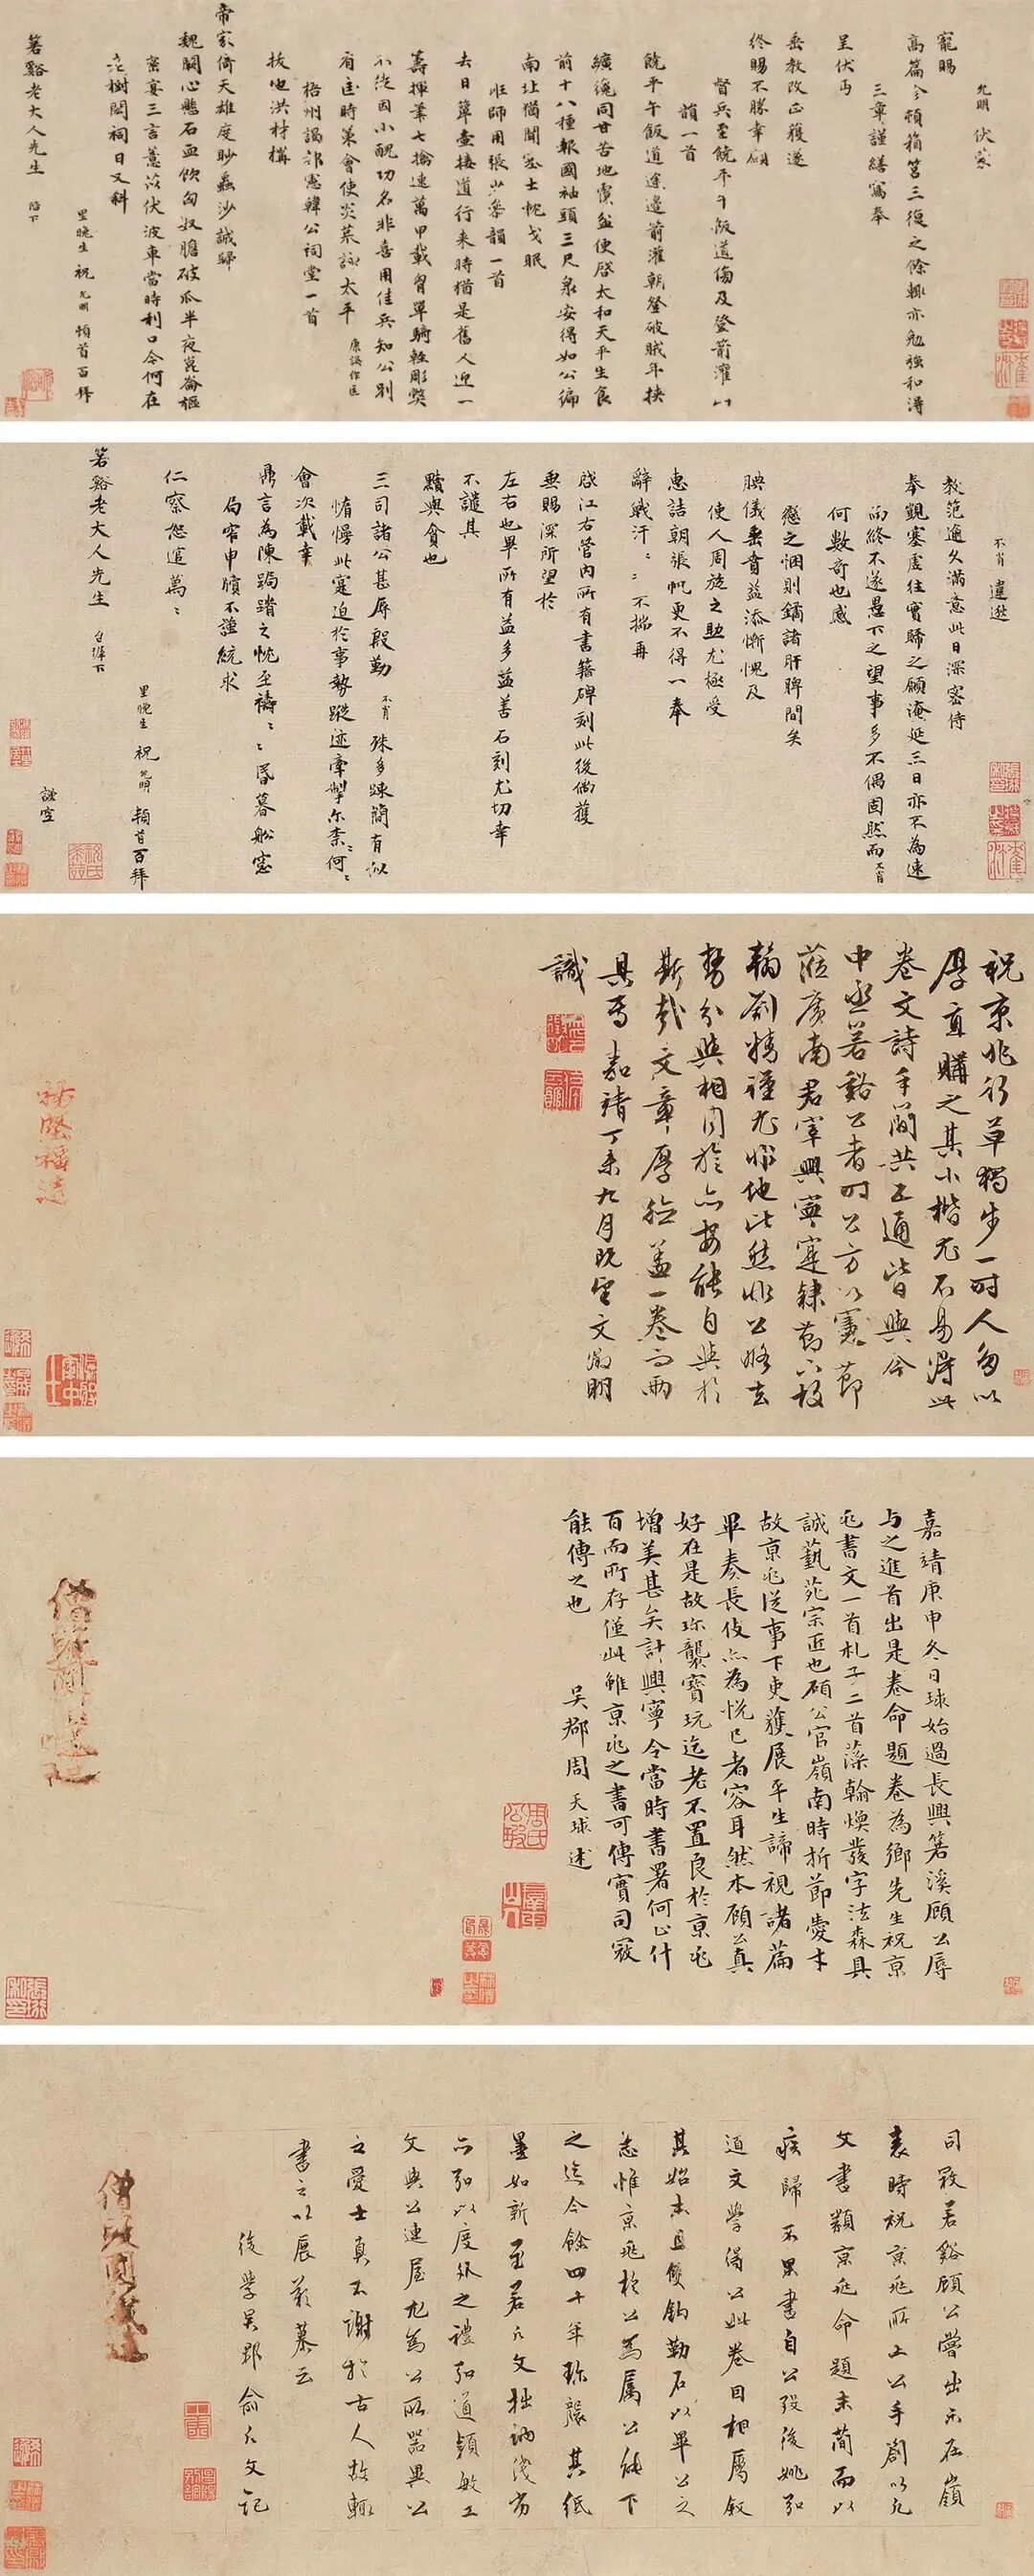 允明 伏蒙
寵賜
高篇今頓箱筥三復之餘輒亦勉強和得
三章謹繕寫奉
呈伏丐
垂教改正獲遂
終賜不勝幸願
督兵至饒平午飯道傷及登箭灌
韻一首
饒平午飯道途邊箭灌朝登破賊年挾
纊俛同甘苦地賓盆便啓太和天平生食
前十八種報國袖頭三尺泉安得如公編
南北猶聞寒士枕戈眠
班師用張 韻一首
去日簞壺接道行来時猶是舊人迎一
籌揮筆七擒速萬甲載胷單騎輕彫獘
不能因小醜功名非喜用佳兵知公別
有匡時策會使炎荒詠太平
梧州謁郡憲韓公祠堂一首
拔地洪材構
帝家倚天雄度眇蟲沙誠歸
魏闕心懸石血飲匈奴膽破瓜半夜崑崙樞
蜜宴三言薏苡伏波車當時利口今何在
花樹閟祠日又斜
里晚生 祝 允明 頓首百拜
箬谿老大人先生 階下
不肖 違遠
教范逾久滿意此日深密侍
奉觀塞虛往實歸之願淹延三日亦不為速
而終不遂愚下之望事多不偶固然而不肖
何數奇也感
戀之悃則鏤諸肝脾間矣
腆儀垂賁益添慚愧及
使人周旋之助尤極受
惠詰朝張帆更不得一奉
辭戰汗〻〻不揣再
啓江右管內所有書籍碑刻此後倘獲
垂賜深所望於
左右也畢所有益多益善石刻尤切幸
不譴其
黷與貪也
三司諸公甚辱殷勤 不肖 殊多疎簡有似
惰慢此寔迫於事勢蹤迹牽掣尔柰何〻
會次載幸
鼎言為陳跼蹐之忱至禱〻〻昏暮舩窓
局窄申牘不謹統求
仁察恕宣萬〻
里晚生 祝 允明 頓首百拜
箬谿老大人先生 台墀下
謹空
祝京兆行草獨步一時人多以
厚直購之其小楷尤不易得此
卷文詩手簡共五通皆與今
中丞箬谿公者時公方以憲節
蒞廣南君宰興寧寔隸節下故
翰劄精謹尤非他比然非公略去
勢分與相周旋亦安能自與於
斯哉文章厚 蓋一卷而兩
具焉 嘉靖丁未九月既望文徵明
識
嘉靖庚申冬日球始過長興箬溪顧公辱
与之進首出是卷命題卷為鄉先生祝京
兆書文一首札子二首藻翰煥發字法森具
誠藝苑宗匠也顧公官嶺南時折節愛才
故京兆從事下吏獲展平生諦視諸篇
畢奏長伎亦為悅己者容耳然本顧公真
好在是故珎襲寶玩迄老不置良於京兆
增美甚矣計興寧令當時書署何止什
百而所存僅此雖京兆之書可傳實司寇
能傳之也 吳郡周天球述
司寇若谿顧公嘗出示在嶺
表時祝京兆所上公手劄以允
文書類京兆命題末簡而以
疾歸不果書自公歿後姚弘
道文學得公此卷因相屬敘
其始末且雙鈎勒石以畢公之
志惟京兆於公為屬公能下
之迄今餘四十年珎襲其紙
墨如新至若允文拙訥淺劣
亦弘以度外之禮弘道穎敏工
文與公連屋尤為公所器異公
之愛士真不謝於古人故輒
書之以展歎慕云
後學吳郡俞允文記